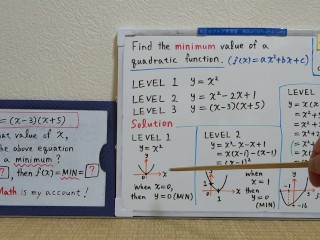 = (x-3)(x+5)
hat value of x,
he above equation
a minimum?
?, then f(x)=MIN= ?
Math is my account!
Find the minimum value of a
quadratic function. (f(x)=ax²+bx+c)
LEVEL 1 y = x²
LEVEL 2 y = x²-2x+1
LEVEL 3 y = (x-3)(x+5)
Solution
LEVEL 1
y = x²
y
x
0
when
x=0,
then y=0 (MIN)
LEVEL 2
y = x²-x-x+1
= x(x-1)-(x-1)
y
1
1
x
when
x = 1
then y=0 (MIN)
LEV
y=(x
= x²+
= x²+
= x²
-1
-16